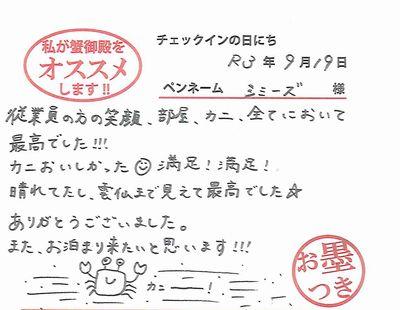 私が蟹御殿を
オススメ
します!!
チェックインの日にち
R3年9月19日
ペンネーム シミーズ 様
従業員の方の笑顔、部屋、カニ、全てにおいて
最高でした!!!
カニおいしかった☺満足!満足!
晴れてたし、雲仙まで見えて最高でした☆
ありがとうございました。
また、お泊まり来たいと思います!!!
カニー!
お墨
つき